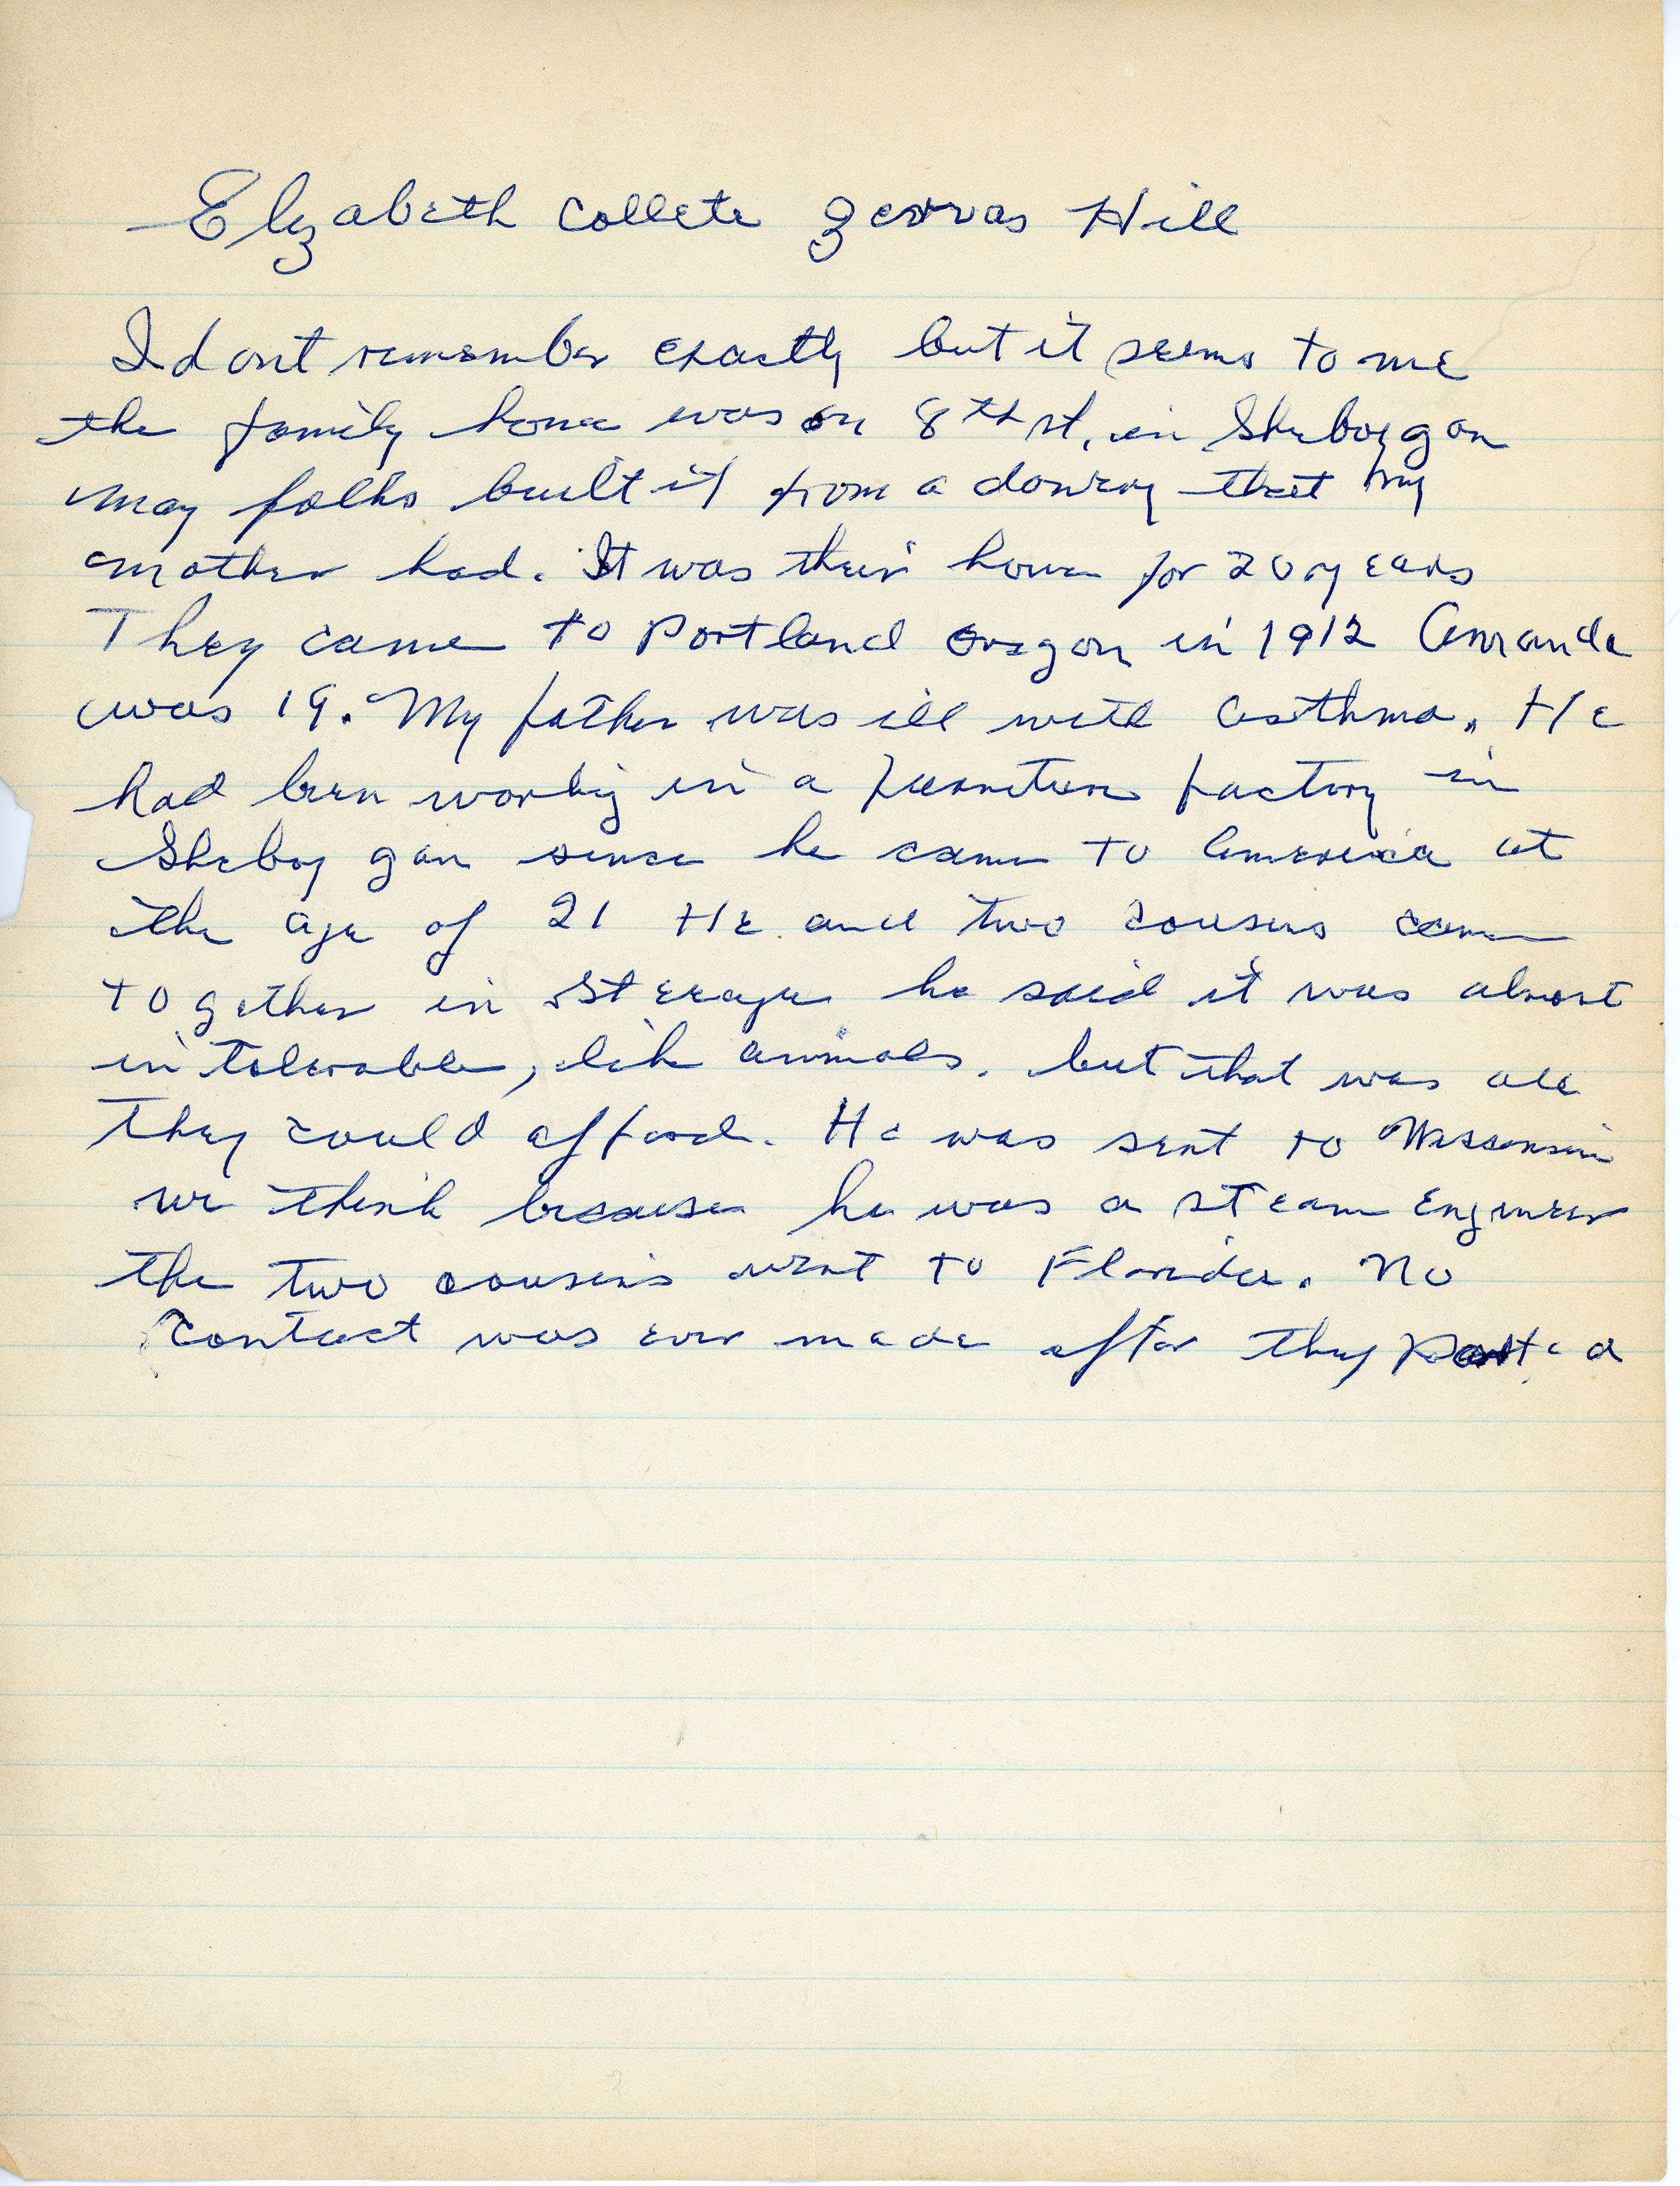 Elizabeth Collete Gervas Hill
I dont remember exactly but it seems to me
the family home was on 8th st. in Sheboygan
may folks built it from a dowery that my
mother had. It was their home for 20 years
They came to Portland Oregon in 1912 Amanda
was 19. My father was ill with asthma. He
had been workig in a furniture factory in
Sheboygan since he came to America at
the age of 21 He and two cousins came
together in sterage he said it was almost
intolerable, like animals. but that was all
They could afford. He was sent to Wisconsin
we think because he was a steam Engineer
the two cousins went to Florida. No
contact was ever made after they parted